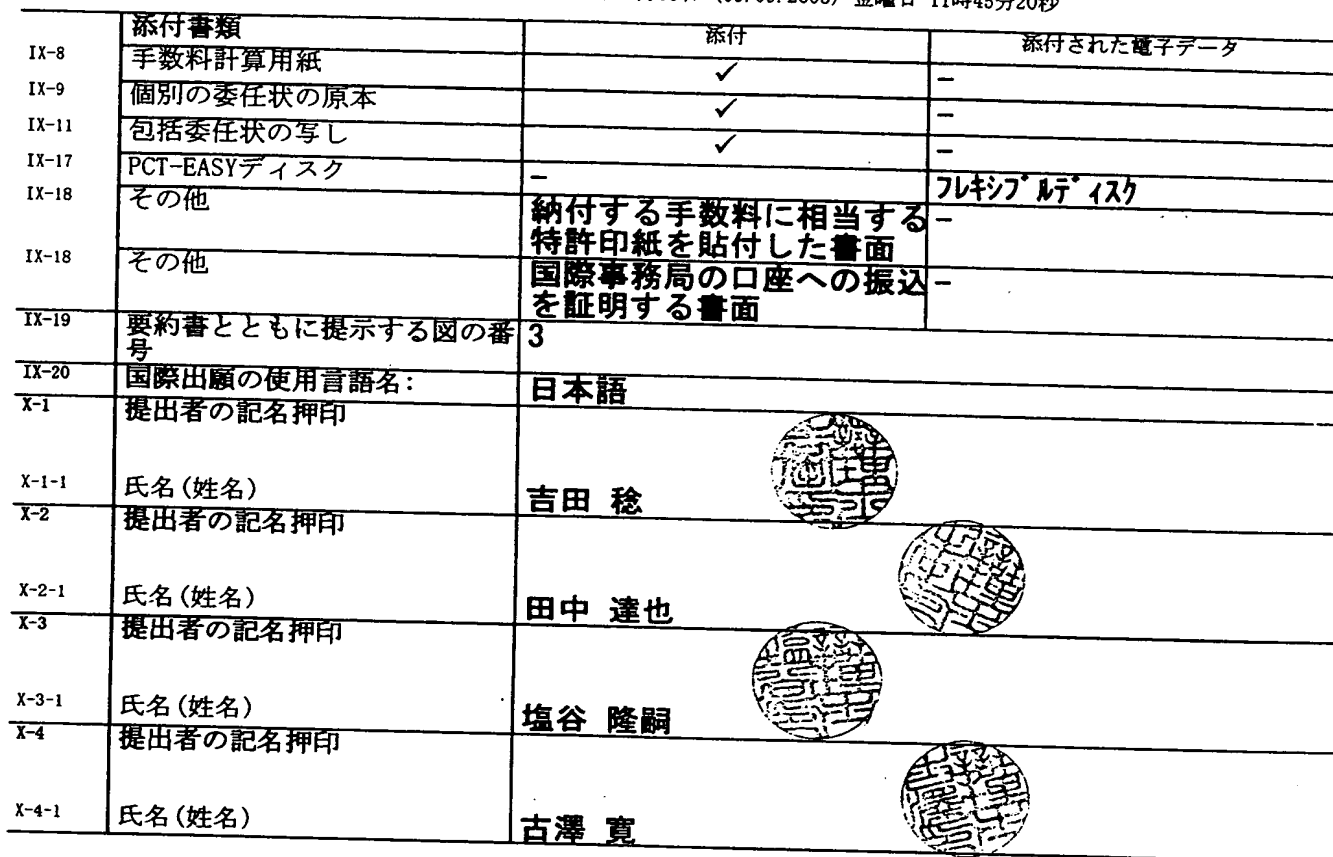 金曜日 11時45分20秒
添付書類 添付 添付された電子データ
IX-8 手数料計算用紙 ✓ −
IX-9 個別の委任状の原本 ✓ −
IX-11 包括委任状の写し ✓ −
IX-17 PCT-EASYディスク − フレキシブルディスク
IX-18 その他 納付する手数料に相当する −
特許印紙を貼付した書面
IX-18 その他 国際事務局の口座への振込 −
を証明する書面
IX-19 要約書とともに提示する図の番 3
号
IX-20 国際出願の使用言語名: 日本語
X-1 提出者の記名押印
X-1-1 氏名(姓名) 吉田 稔
X-2 提出者の記名押印
X-2-1 氏名(姓名) 田中 達也
X-3 提出者の記名押印
X-3-1 氏名(姓名) 塩谷 隆嗣
X-4 提出者の記名押印
X-4-1 氏名(姓名) 古澤 寛